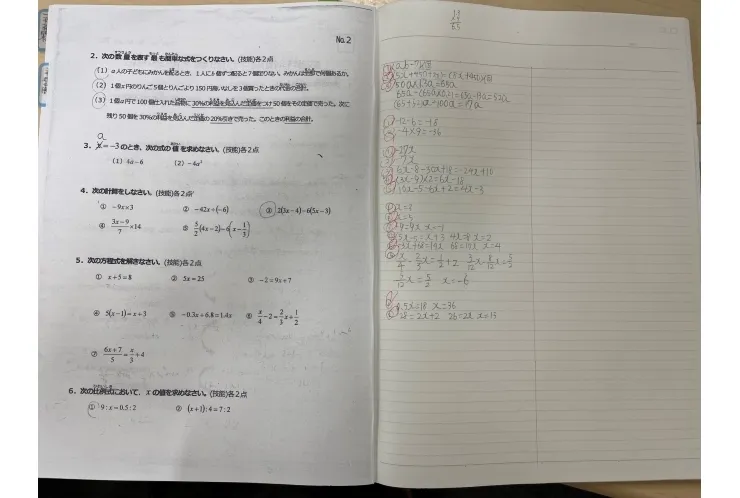 No.2
2. 次の数量を表す最も簡単な式をつくりなさい。(技能)各2点
(1) a人の子どもにみかんを配るとき、1人にb個ずつ配ると7個足りない。みかんは全部で何個あるか。
(2) 1個x円のりんご5個とりんごより150円高いなしを3個買ったときの代金の合計。
(3) 1個a円で100個仕入れた品物に30%の利益を見込んだ定価をつけ50個をその定価で売った。次に
残り50個を30%の利益を見込んだ定価の20%引きで売った。このときの利益の合計。
a
3. x=-3のとき、次の式の値を求めなさい。(技能)各2点
(1) 4a-6 (2) -4a²
4. 次の計算をしなさい。(技能)各2点
① -9x×3 ② -42x÷(-6) ③ 2(3x-4)-6(5x-3)
④ 3x-9/7 ×14 ⑤ 5/2(4x-2)-6(x-1/3)
5. 次の方程式を解きなさい。(技能)各2点
① x+5=8 ② 5x=25 ③ -2=9x+7
④ 5(x-1)=x+3 ⑤ -0.3x+6.8=1.4x ⑥ x/4-2=2/3x+1/2
⑦ 6x+7/5=x/3+4
6. 次の比例式において、xの値を求めなさい。(技能)各2点
① 9:x=0.5:2 ② (x+1):4=7:2
13
65
ab-7個
50a×1.3a=65a
-12-6=-18
-4×9=-36
-27x
7x
6x-8-30x+18=-24x+10
(3x-9)×2=6x-18
10x-5-6x+2=4x-3
x=3
x=5
-9=9x x=-1
5x-5=x+3 4x=8 x=2
x=4
5/12x=5/2 x=-6
0.5x=18 x=36
28=2x+2 26=2x x=13